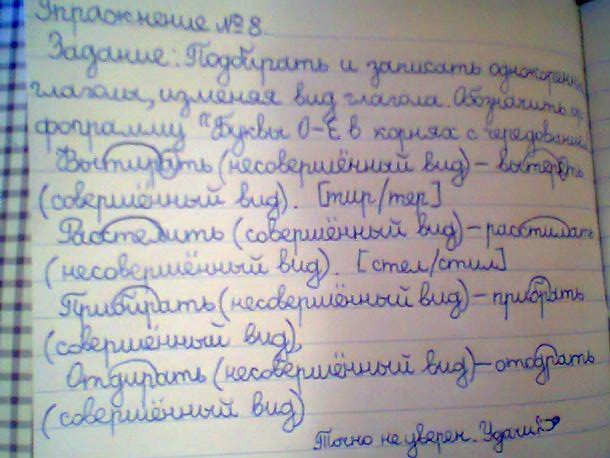 Упражнение №8.
Задание: Подбирать и записать однокоренные
глаголы, изменяя вид глагола. Обозначить ор
фограмму "Буквы О-Е в корнях с чередованием
Вытирать (несовершённый вид) – вытереть
(совершённый вид). [тир/тер]
Расстелить (совершённый вид) – расстилать
(несовершённый вид). [стел/стил]
Прибирать (несовершённый вид) – прибрать
(совершённый вид),
Отдирать (несовершённый вид) – отодрать
(совершённый вид)
Точно не уверен. Удачи